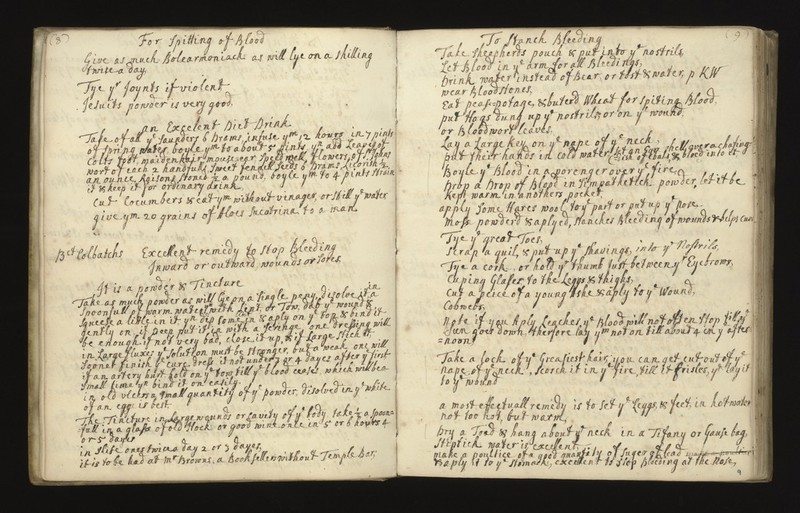 (8)
For Spitting of Blood
Give as much Bolearmoniack as will lye on a shilling
twice a day
Tye yr Joynts if violent
Jesuits powder is very good.
an Excelent Diet Drink
Take of all ye saunders 6 Drams, infuse ym 12 hours in 7 pints
of spring water boyle ym to about 5 pints, yn add Leaves of
Colts foot, maidenhair, mouse ear, speedwell, flowers of St Johns
wort of each 2 handfuls, sweet fennell seeds 6 Drams, Licorish ½
an ounce, Raisons stoned ½ a pound, boyle ym to 4 pints strain
it & keep it for ordinary drink.
Cut Cocumbers & eat ym without vinager, or still ye water
give ym 20 grains of Aloes Sucotrina to a man.
Bct Colbatchs Excellent remedy to stop Bleeding
Inward or outward, wounds or sores,
It is a powder & Tincture
Take as much powder as will lye on a single peny, disolve it in a
spoonfull of warm water, with Lent, or Tow, dab ye wound &
squeeze a little in it yn dip some in & aply on ye top & bind it
gently on, if Deep put it in with a seringe, one dressing will
be enough if not very bad, close it up, & if Large stich it
in Large fluxes ye solution must be stronger, but a weak one will
sooner finish ye cure, dress it not under 3 or 4 dayes after ye first
if an artery hurt hold on ye tow till ye blood ceases which will be a
small time yn bind it on easily.
in old ulcers a small quantity of ye powder disolved in ye white
of an egg is best.
The Tincture in Large wounds or cavity of ye body, take ½ a spoon=
full in a glass of old Hock or good wine once in 5 or 6 hours 4
or 5 dayes
in slite ones twice a day 2 or 3 dayes,
it is to be had at Mr Browns, a Bookseller without Temple Bar,
(9)
To Stanch Bleeding
Take sheepherds pouch & put into ye nostrils
Let Blood in ye Arm for all Bleedings,
Drink water instead of Bear, or tost & water, p KW
wear Bloodstones,
Eat peas-potage, & buterd Wheat for spiting Blood,
put Hogs dung up ye nostrils or on ye wound,
or Bloodwort leaves.
Lay a Large key on ye nape of ye neck
put their hands in cold water, set an Egg shell, over a chafing
Dish of Coals & bleed into it
Boyle ye Blood in a porenger over ye fire
Drop a Drop of Blood in Simpathetick powder, let it be
kept warm in anothers pocket
apply some Hares wooll to ye part or put up ye nose.
Moss powderd & aplyed, stanches Bleeding of wounds & helps
Tye ye great Toes,
Scrap a quil, & put up ye shavings, into ye Nostrils,
Tye a cork, or hold ye thumb just between ye Eyebrows,
Cuping Glases to the Leggs & thighs,
Cut a peice of a young Ashe & aply to ye Wound,
Cobwebs
Note if you Aply Leaches, ye Blood will not often stop till ye
Sun goes down, therfore lay ym not on till about 4 in ye after
=noon
Take a Lock of ye Greasiest hair, you can get, cut out of ye
nape of ye neck, scorch it in ye fire, till it frisles, yn lay it
to ye wound
a most effectuall remedy is to set ye Leggs, & feet, in hot water
not too hot, but warm,
Dry a Toad & hang about ye neck in a Tifany or Gause bag,
Stiptick water is excellent
make a poultice of a good quantity of suger of Lead
& aply it to ye stomack, excelent to stop Bleeding at the Nose,